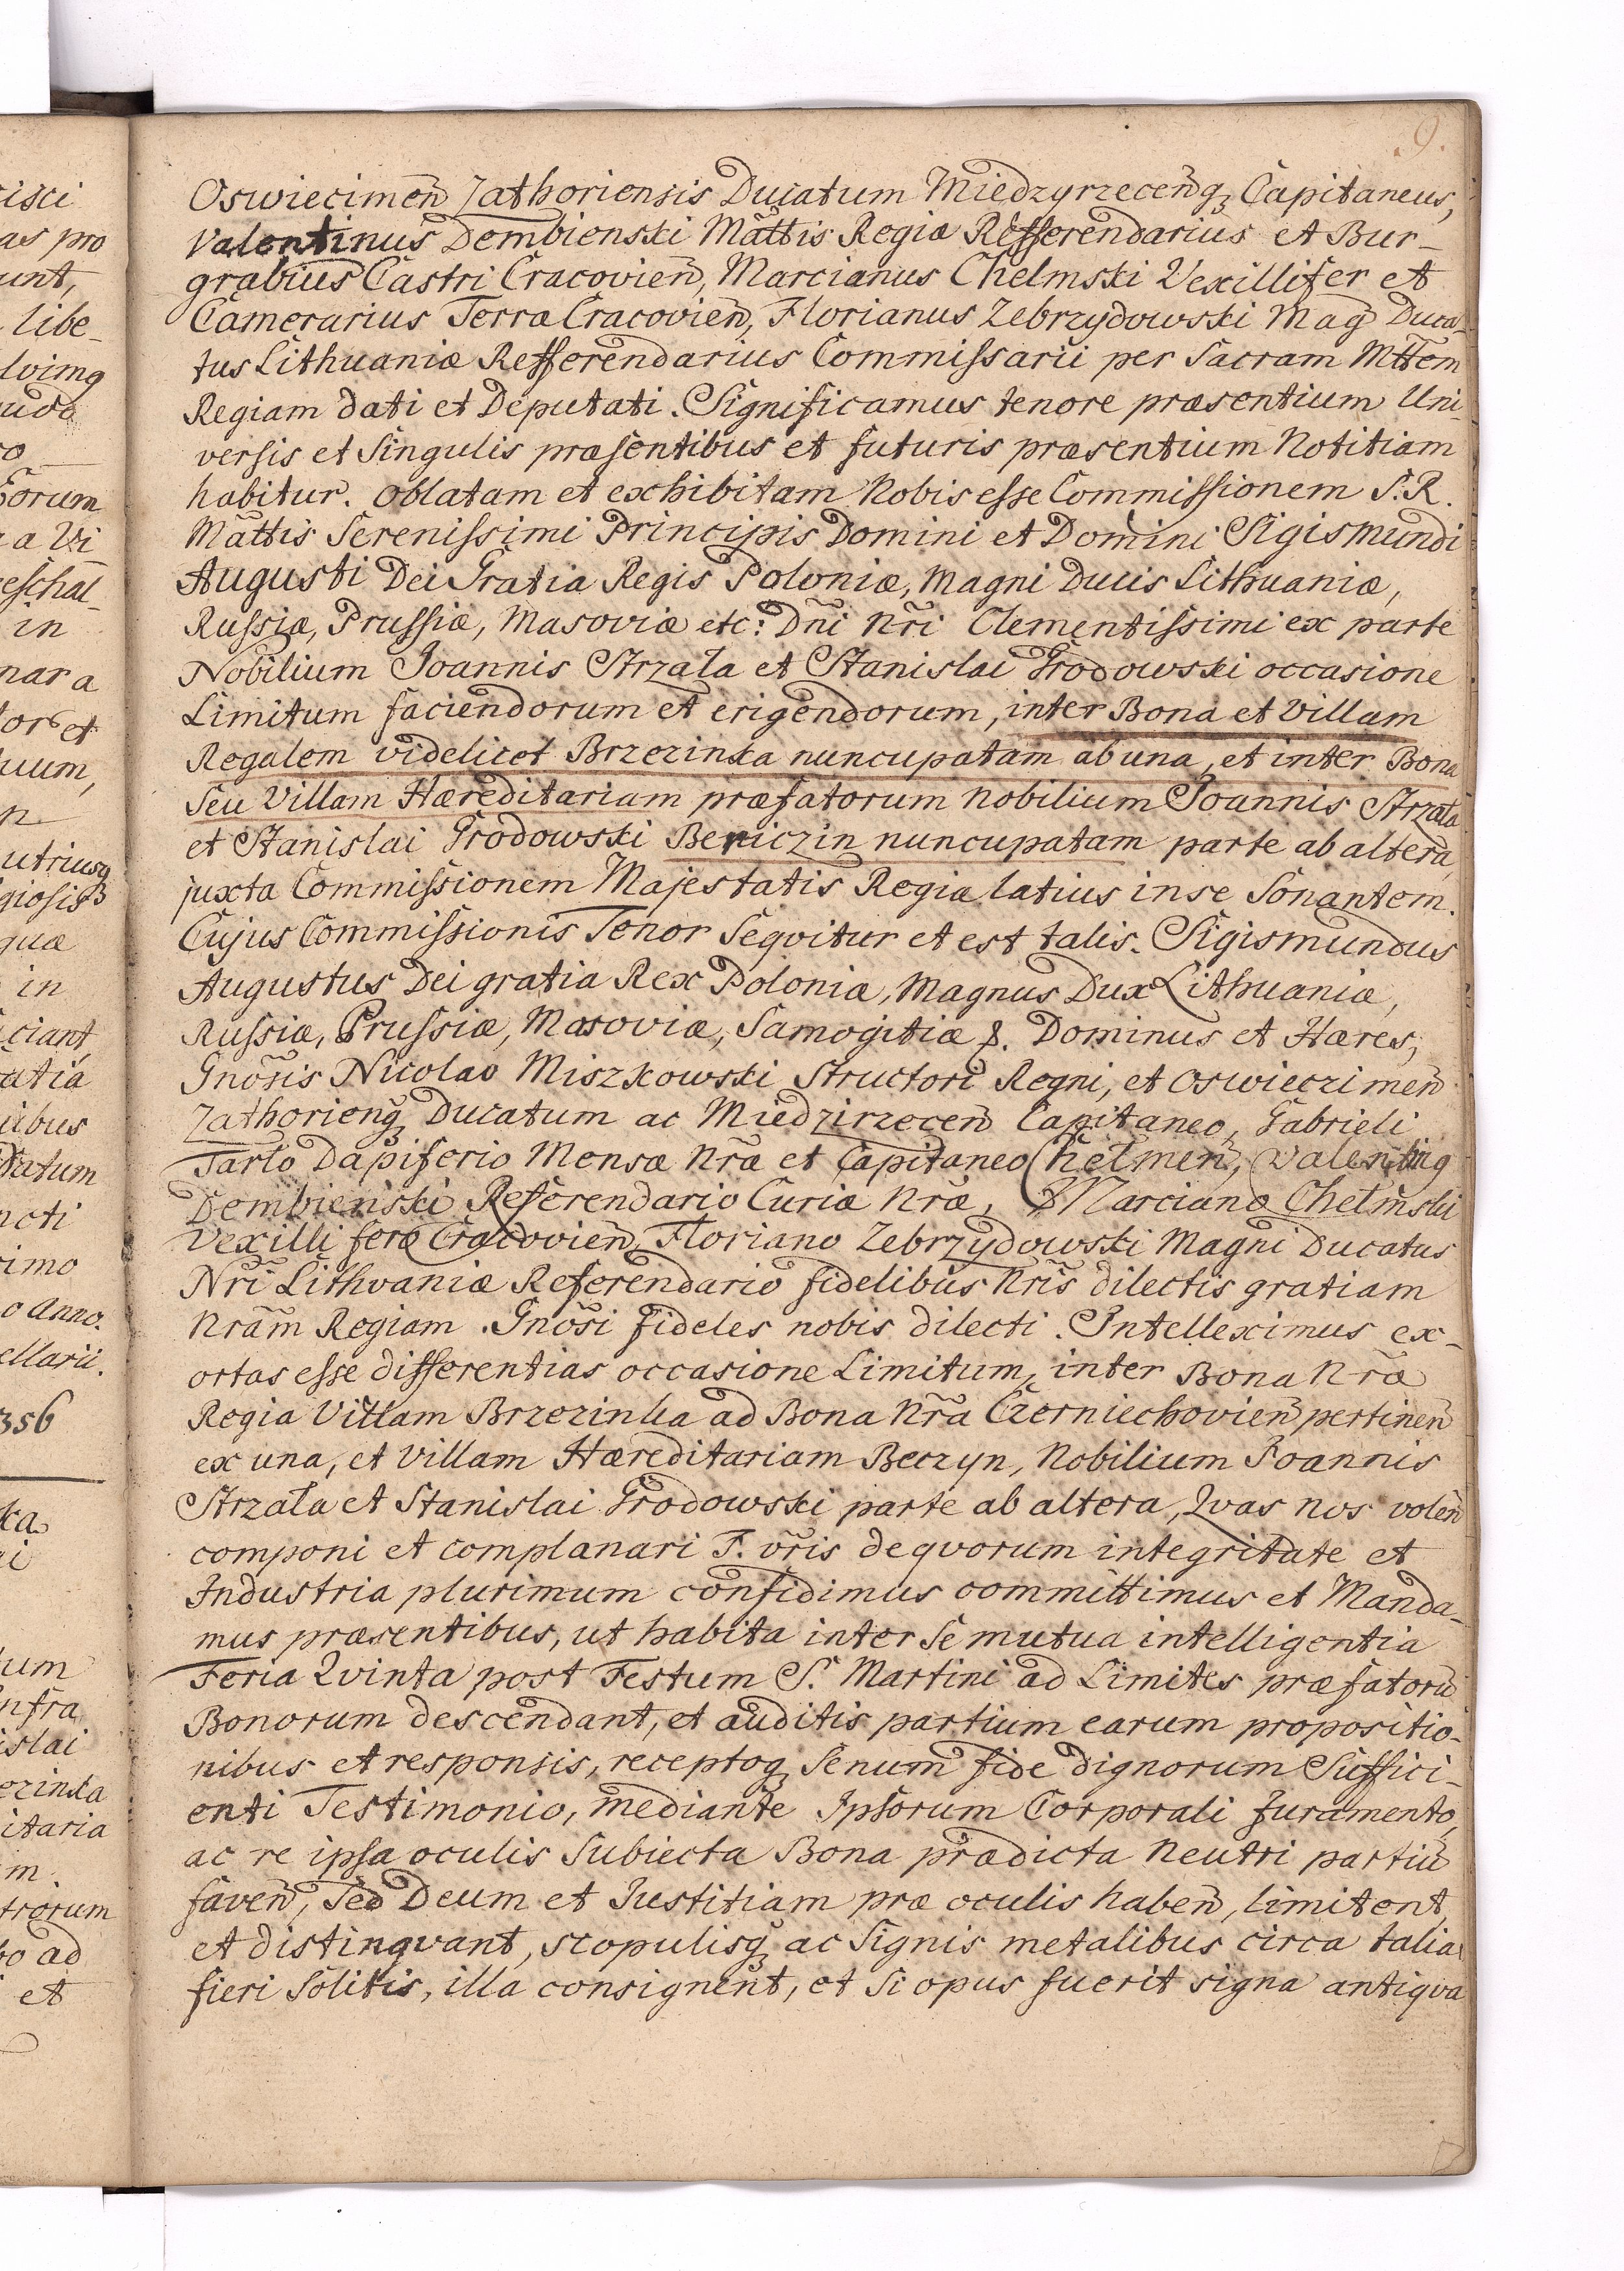 9.
Oswiecimen̄ Zathoriensis Ducatum Miedzyrzecen̄q̨ Capitaneus,
Valentinus Dembienski Mãttis Regiæ Refferendarius et Bur-
grabius Castri Cracovien̄, Marcianus Chelmski Vexillifer et
Camerarius Terræ Cracovien̄, Florianus Zebrzydowski Mag̃ Duca-
tus Lithuaniæ Refferendarius Commissarii per Sacram Mttem
Regiam dati et Deputati. Significamus tenore præsentium Uni-
versis et Singulis præsentibus et futuris præsentium Notitiam
habitur. oblatam et exhibitam Nobis esse Commissionem S. R.
Mãttis Serenissimi Principis Domini et Domini Sigismundi
Augusti Dei Gratia Regis Poloniæ, Magni Ducis Lithuaniæ,
Russiæ, Prussiæ, Masoviæ etc: Dñi Nr̃i Clementissimi ex parte
Nobilium Joannis Strzała et Stanislai Grodowski occasione
Limitum faciendorum et erigendorum, inter Bona et Villam
Regalem videlicet Brzezinka nuncupatam ab una, et inter Bona
Seu Villam Hæreditariam præfatorum Nobilium Joannis Strzała
et Stanislai Grodowski Bericzin nuncupatam parte ab altera,
juxta Commissionem Majestatis Regiæ latius in se Sonantem.
Cujus Commissionis Tenor Seqvitur et est talis. Sigismundus
Augustus Dei gratia Rex Poloniæ, Magnus Dux Lithuaniæ,
Russiæ, Prussiæ, Masoviæ, Samogitiæ &. Dominus et Hæres,
Gnõsis Nicolao Miszkowski Structori Regni, et Oswieczimen̄
Zathorienq̨ Ducatum ac Miedzirzecen̄ Capitaneo, Gabrieli
Tarło Dapiferio Mensæ Nr̃æ et Capitaneo Chełmen̄, Valentinq
Dembienski Referendario Curiæ Nr̃æ, Marciano Chełmski
Vexilli feræ Cracovien̄, Floriano Zebrzydowski Magni Ducatus
Nr̃i Lithvaniæ Referendario fidelibus Nr̃is dilectis gratiam
Nr̃am Regiam. Gnõsi fideles nobis dilecti. Intelleximus ex-
ortas esse differentias occasione Limitum, inter Bona Nr̃a
Regia Villam Brzezinka ad Bona Nr̃a Czerniechovien̄ pertinen̄
ex una, et villam Hæreditariam Berzyn, Nobilium Joannis
Strzała et Stanislai Grodowski parte ab altera, Qvas nos volen̄
componi et complanari F. vr̃is de qvorum integritate et
Industria plurimum confidimus committimus et Manda-
mus præsentibus, ut habita inter Se mutua intelligentia
Feria Qvinta post Festum S. Martini ad Limites præfatorũ
Bonorum descendant, et auditis partium earum propositio-
nibus et responsis, receptoq̨ Senum fide dignorum Suffici-
enti Testimonio, mediante Ipsorum Corporali Juramento,
ac re ipsa oculis Subiecta Bona prædicta Neutri partiũ
faven̄, Sed Deum et Iustitiam præ oculis haben̄, limitent,
et distinqvant, scopulisq̨ ac Signis metalibus circa talia
fieri Solitis, illa consignent, et Si opus fuerit signa antiqva